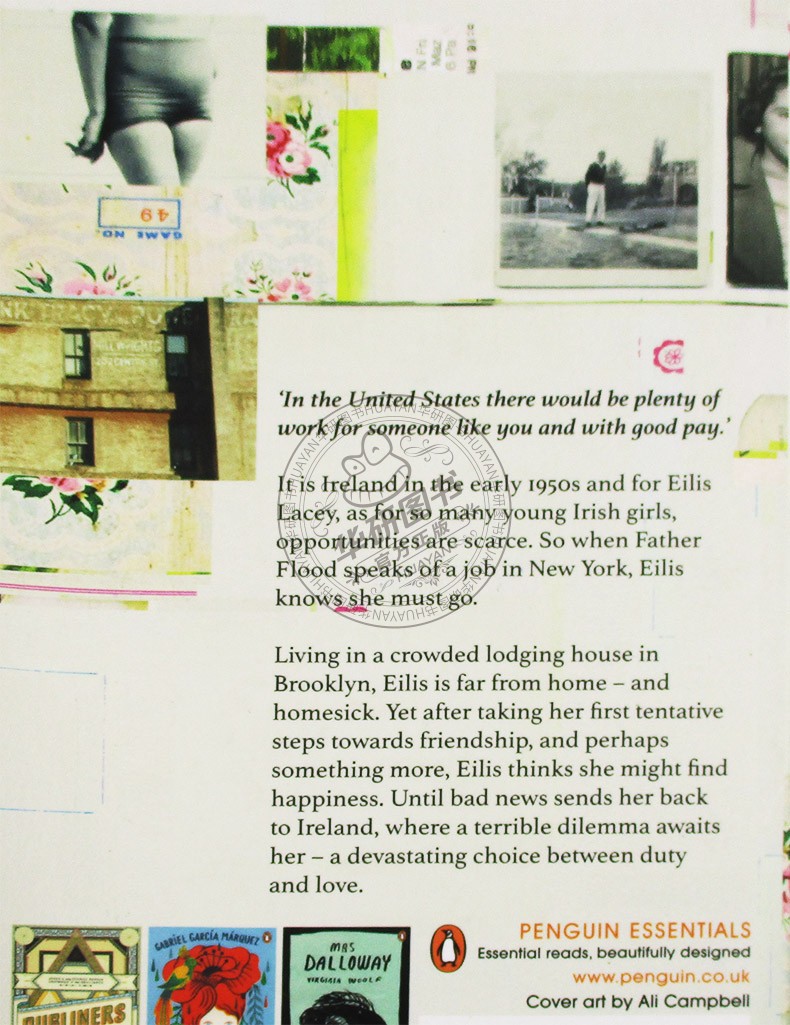 49
GAME NO.
'In the United States there would be plenty of
work for someone like you and with good pay.'
It is Ireland in the early 1950s and for Eilis
Lacey, as for so many young Irish girls,
opportunities are scarce. So when Father
Flood speaks of a job in New York, Eilis
knows she must go.
华研图书
官方正版
HUAYAN
Living in a crowded lodging house in
Brooklyn, Eilis is far from home – and
homesick. Yet after taking her first tentative
steps towards friendship, and perhaps
something more, Eilis thinks she might find
happiness. Until bad news sends her back
to Ireland, where a terrible dilemma awaits
her – a devastating choice between duty
and love.
DUBLINERS
GABRIEL GARCÍA MÁRQUEZ
MRS
DALLOWAY
VIRGINIA WOOLF
PENGUIN ESSENTIALS
Essential reads, beautifully designed
www.penguin.co.uk
Cover art by Ali Campbell